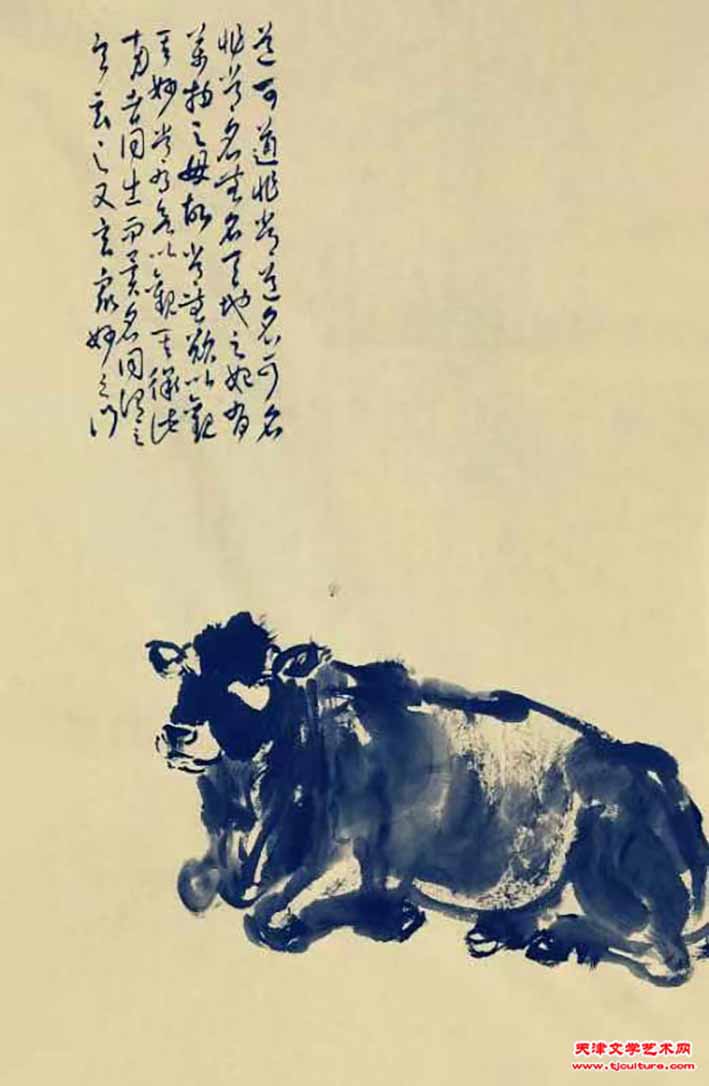 道可道非常道名可名
非常名無名天地之始有
萬物之母故常無欲以觀
其妙常有欲以觀其徼此
两者同出而異名同謂之
玄玄之又玄衆妙之門
天津文学艺术网
www.tjculture.com